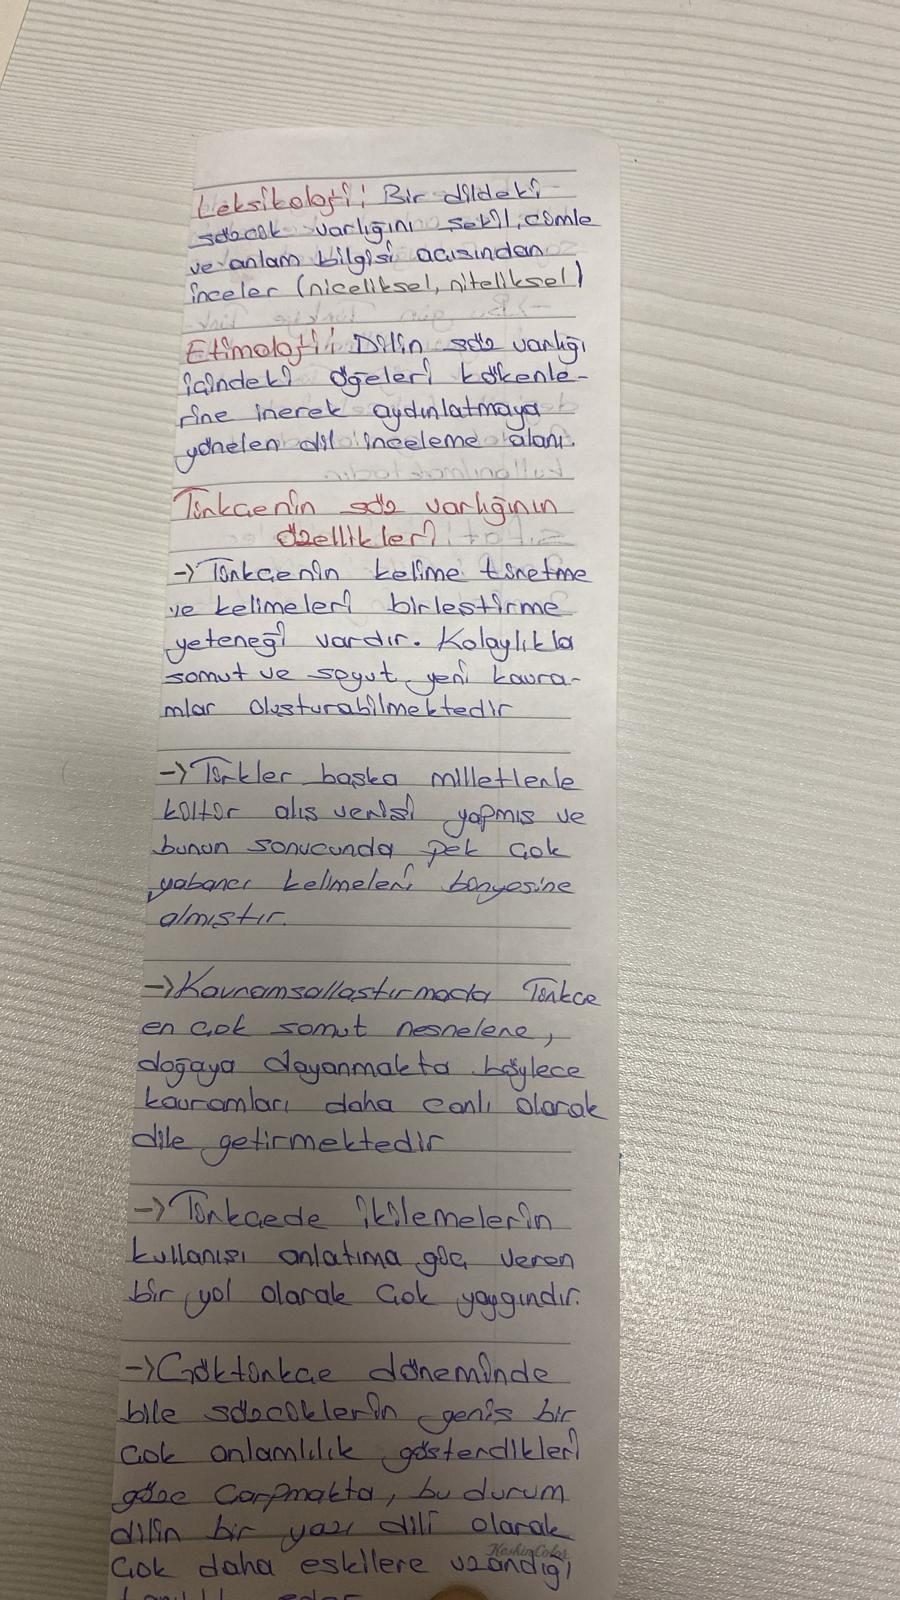 Leksikoloji: Bir dildeki
sözcük varlığını şekil, cümle
ve anlam bilgisi açısından
inceler (niceliksel, niteliksel)
Etimoloji: Dilin söz varlığı
içindeki öğeleri kökenle-
rine inerek aydınlatmaya
yönelen dil inceleme alanı.
Türkçenin söz varlığının
özellikleri
→ Türkçenin kelime türetme
ve kelimeleri birleştirme
yeteneği vardır. Kolaylıkla
somut ve soyut yeni kavra-
mlar oluşturabilmektedir
→ Türkler başka milletlerle
kültür alış verişi yapmış ve
bunun sonucunda pek çok
yabancı kelimeleri bünyesine
almıştır.
→ Kavramsallaştırmada Türkçe
en çok somut nesnelere,
doğaya dayanmakta böylece
kavramları daha canlı olarak
dile getirmektedir
→ Türkçede ikilemelerin
kullanışı anlatıma güç veren
bir yol olarak çok yaygındır.
→ Göktürkçe döneminde
bile sözcüklerin geniş bir
çok anlamlılık gösterdikleri
göze çarpmakta, bu durum
dilin bir yazı dili olarak
KeskinColor
çok daha eskilere uzandığı